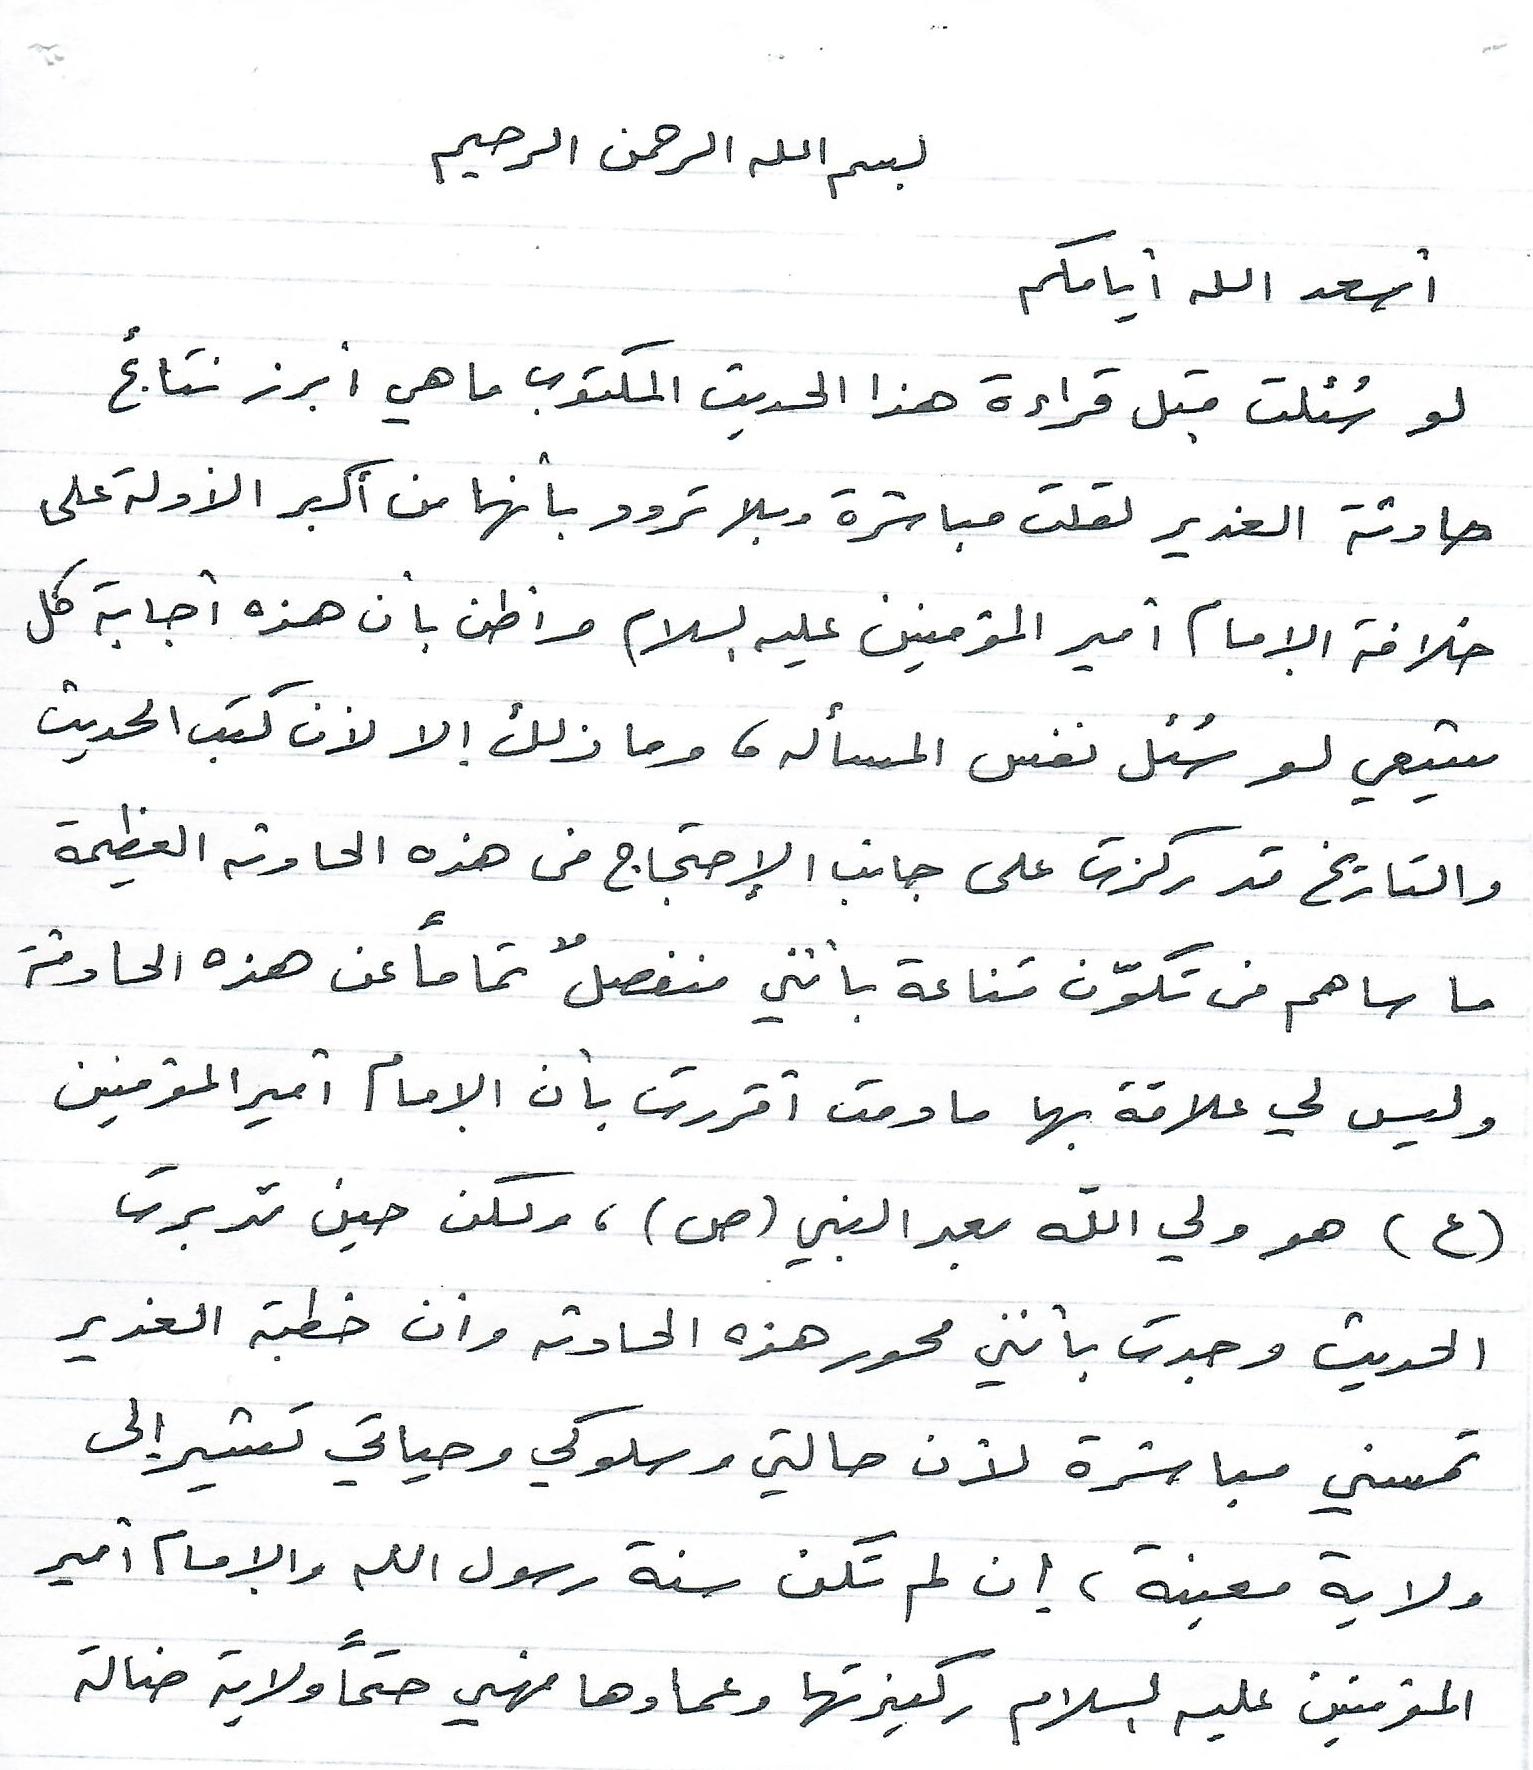 بسم الله الرحمن الرحيم
أسعد الله أيامكم
لو سُئلت قبل قراءة هذا الحديث المكتوب ما هي أبرز نتائج
حادثة الغدير لقلت مباشرة وبلا تردد بأنها من أكبر الأدلة على
خلافة الإمام أمير المؤمنين عليه السلام وأظن بأن هذه أجابة كل
شيعي لو سُئل نفس المسأله ، وما ذلك إلا لأن كتب الحديث
والتاريخ قد ركزت على جانب الإحتجاج في هذه الحادثه العظيمة
ما ساهم في تكوّن قناعة بأنني منفصلٌ تماماً عن هذه الحادثة
وليس لي علاقة بها مادمت أقررت بأن الإمام أمير المؤمنين
(ع) هو ولي الله بعد النبي (ص) ، ولكن حين تدبرت
الحديث وجدت بأنني محور هذه الحادثه وأن خطبة الغدير
تمسني مباشرة لأن حالتي وسلوكي وحياتي تشير إلى
ولاية معينة ، إن لم تكن سنة رسول الله والإمام أمير
المؤمنين عليه السلام ركيزتها وعمادها فهي حتماً ولاية ضالة